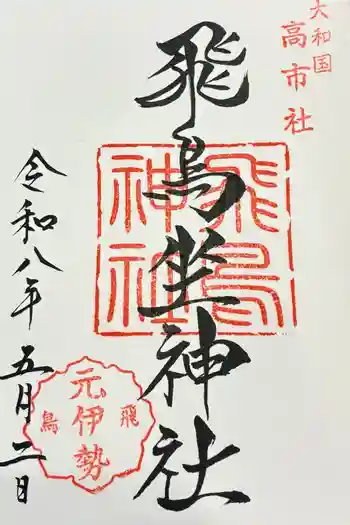 大和国
高市社
飛鳥坐神社
飛鳥
神社
令和八年五月二日
元伊勢
飛鳥